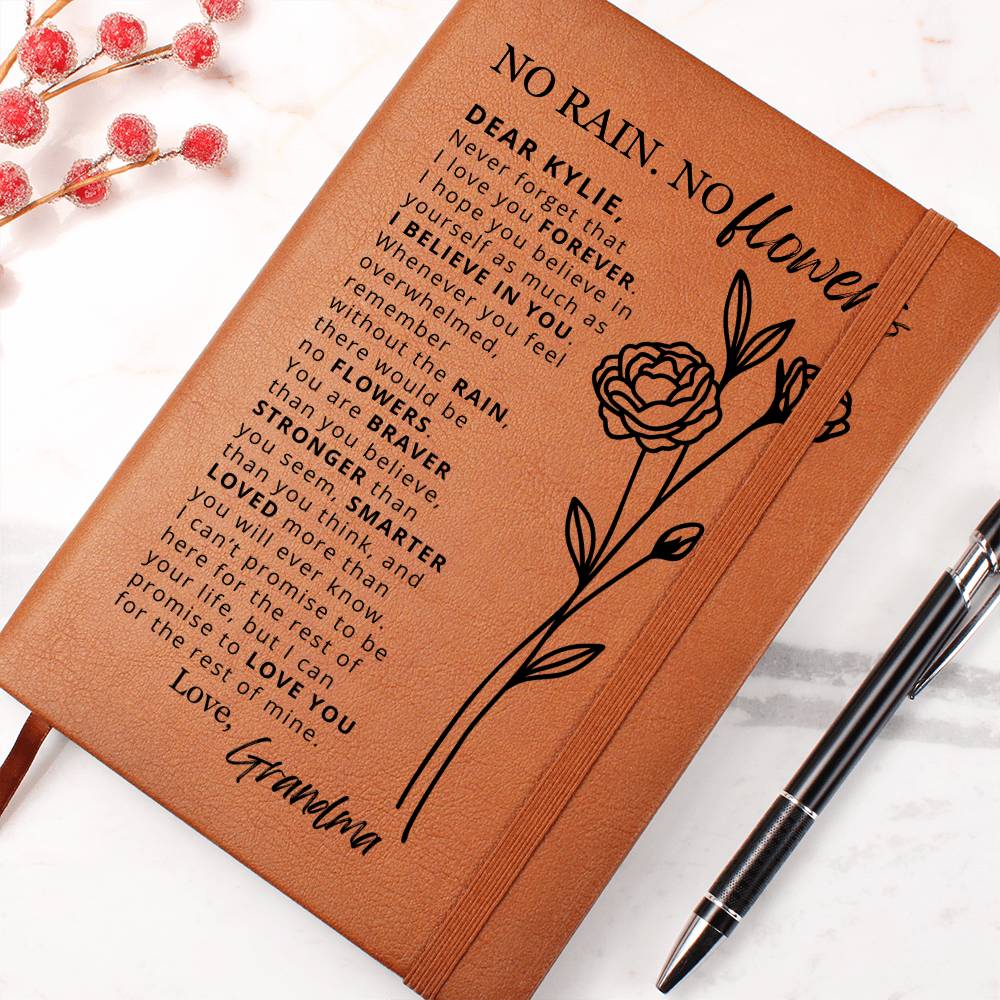 NO RAIN. NO flowers
DEAR KYLIE,
Never forget that
I love you FOREVER.
I hope you believe in
yourself as much as
I BELIEVE IN YOU.
Whenever you feel
overwhelmed,
remember
without the RAIN,
there would be
no FLOWERS.
You are BRAVER
than you believe,
STRONGER than
you seem, SMARTER
than you think, and
LOVED more than
you will ever know.
I can't promise to be
here for the rest of
your life, but I can
promise to LOVE YOU
for the rest of mine.
Love,
Grandma